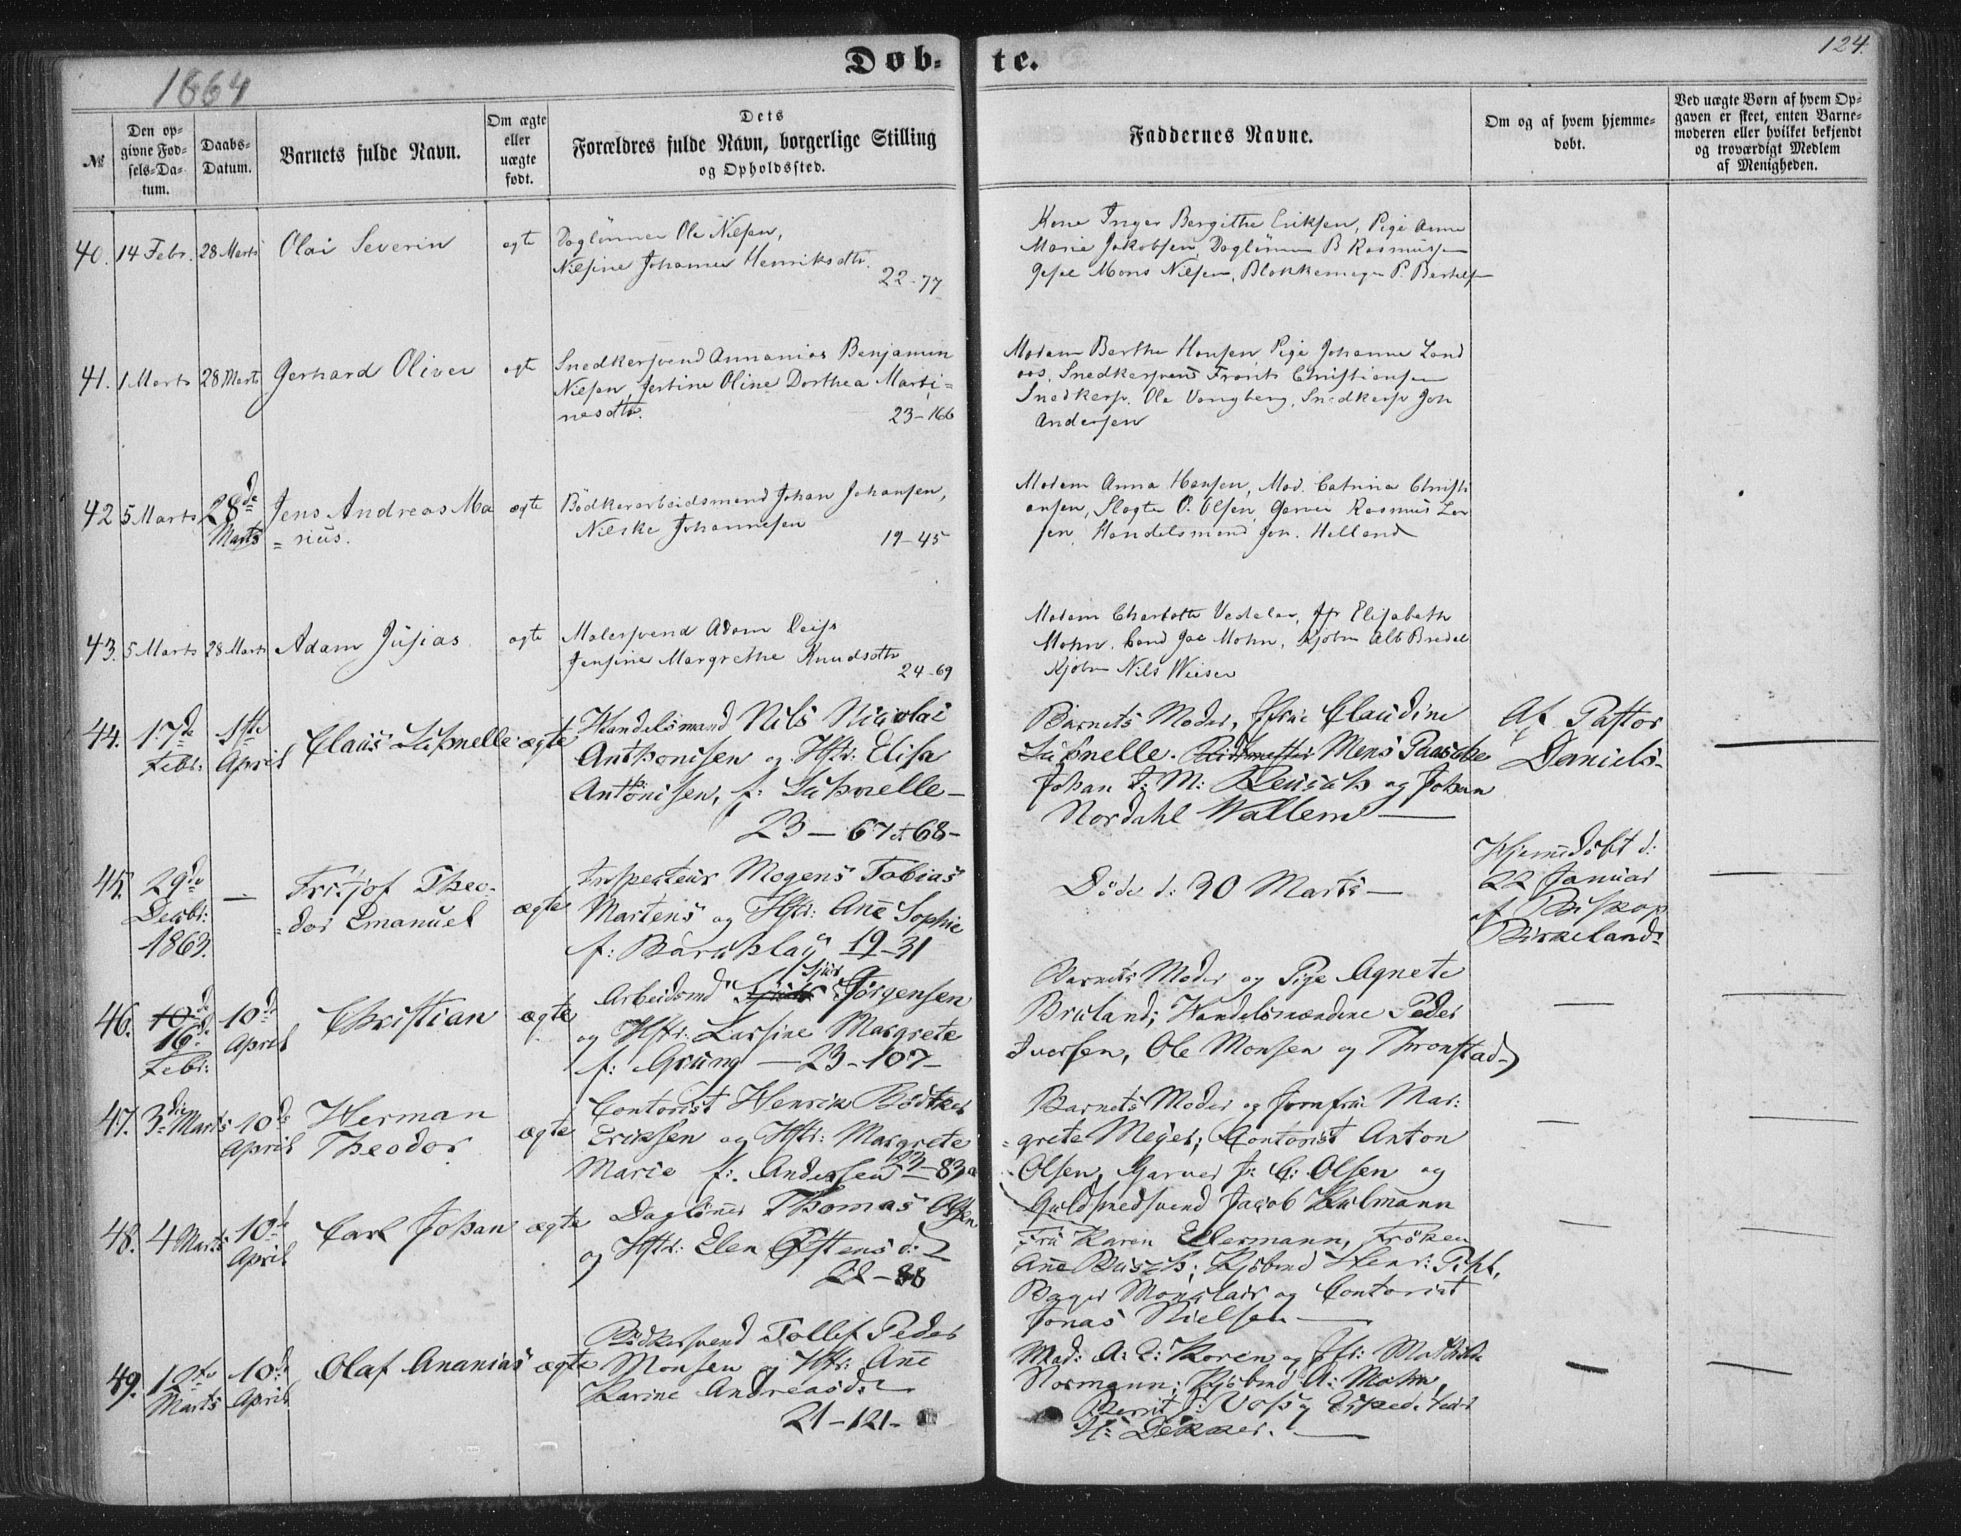 1864
Døb-
te.
124.
№
Den op-
givne Fød-
sels-Da-
tum.
Daabs-
Datum.
Barnets fulde Navn.
Om ægte
eller
uægte
født.
Dets
Forældres fulde Navn, borgerlige Stilling
og Opholdssted.
Faddernes Navne.
Om og af hvem hjemme-
døbt.
Ved uægte Børn af hvem Op-
gaven er skeet, enten Barne-
moderen eller hvilket bekjendt
og troværdigt Medlem
af Menigheden.
40. 14 Febr. 28 Marts Olai Severin ægte
Daglønner Ole Nilsen,
Nilsine Johanne Henriksdtr.
22-77
Kone Inger Bergithe Eriksen, Pige Anne
Marie Jakobsen, Daglønner B Rasmussen
Gesel Mons Nilsen, Blokkemager P. Bertels
41. 1 Marts 28 Marts Gerhard Oliver ægte
Snedkersvend Annanias Benjamin
Nilsen, Jertine Oline Dorthea Marti-
nesdtr.
23-166
Madam Berthe Hansen, Pige Johanne Land
aas, Snedkersvend Frants Christiansen
Snedkersv. Ole Vangberg, Snedkersv Joh
Andersen
42 5 Marts 28de
Marts
Jens Andreas Ma
= rius.
ægte
Bødkerarbeidsmand Johan Johansen,
Nilske Johannesen
19-45
Madam Anna Hansen, Mad. Catrina Christi
ansen, Slagter O. Olsen, Garver Rasmus Lar
sen, Handelsmand Joh. Helland
43. 5 Marts 28 Marts Adam Jusias ægte
Malersvend Adam
Jensine Margrethe Knudsdtr
24-69
Madam Charlotte Vedeler, Jfr Elisabeth
Mohn, Cand Jac Mohn, Kjøbm Alb Bredal
Kjøbm Nils Wieser
44. 17de
Febr:
1ste
April
Claus ægte
Handelsmand Nils Nicolai
Anthonisen og Hstr: Elisa
Anthonisen, f:
23 - 67 et 68-
Barnets Moder, Jfrue Claudine
Mens Paasche
Johan F: M: Reusch og Johan
Nordahl Wallem
Af Pastor
Daniels-
45. 29de
Decbr:
1863.
-
Fritjof Theo-
= dor Emanuel
ægte
Inspecteur Mogens Tobias
Martens og Hstr: Ane Sophie
f: 19-31
Døde d: 30 Marts -
Hjemmedøbt d:
22 Januar
af Biskop
Birkeland-
46. 10d
16d.
Febr:
10d
April
Christian ægte
Arbeidsmd Sjur Jørgensen
og Hstr: Larsine Margrete
f: Grung - 23-107-
Barnets Moder og Pige Agnete
Bruland; Handelsmændene Peder
Iversen, Ole Monsen og Thronstad-
47. 3die Marts 10de
April
Herman
Theodor
ægte
Contorist Henrik Bødtker
Eriksen og Hstr: Margrete
Marie f: Andersen 23-83a
Barnets Moder og Jomfrue Mar:
= grete Meyer; Contorist Anton
Olsen, Garver J: C: Olsen og
Guldsmedsvend Jacob Kulmann
48. 4 Marts 10de
April
Carl Johan ægte
Daglønner Thomas Olsen
og Hstr: Elen Østensd:
22-88
Fru Karen Ellermann, Frøken
Ane Busch; Kjøbmd Henr: Pihl,
Bager Monclair og Contorist
Jonas Nielsen
49. 12te
Marts
10de
April
Olaf Ananias ægte
Bødkersvend Tollef Peder
Monsen og Hstr: Ane
Karine Andreasd:
21-121-
Mad: A: E: Koren og Jfr: Mathilde
Normann; Kjøbmd A: Mohn,
Berrit J: Vos og Exped. Secr.
H: Dekker.